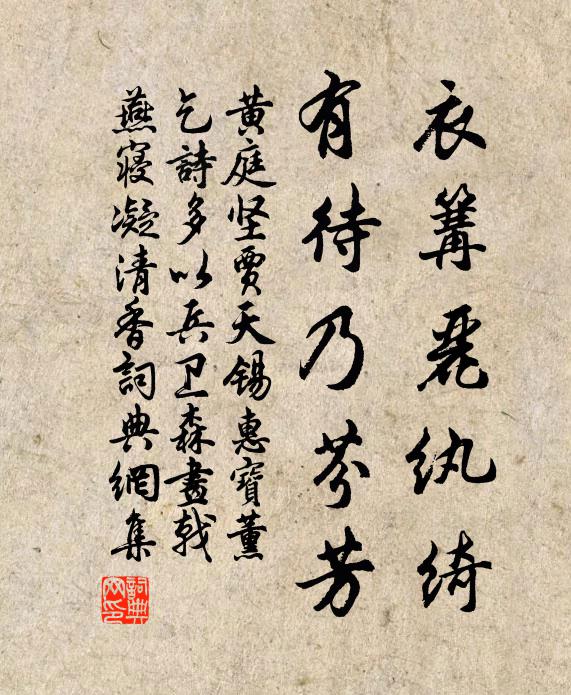 衣篝麗紈綺
有待乃芬芳
黃庭坚賈天锡惠寶薰
乞詩多以兵卫森畫戟
燕寢凝清香詞典網集
詞典网印